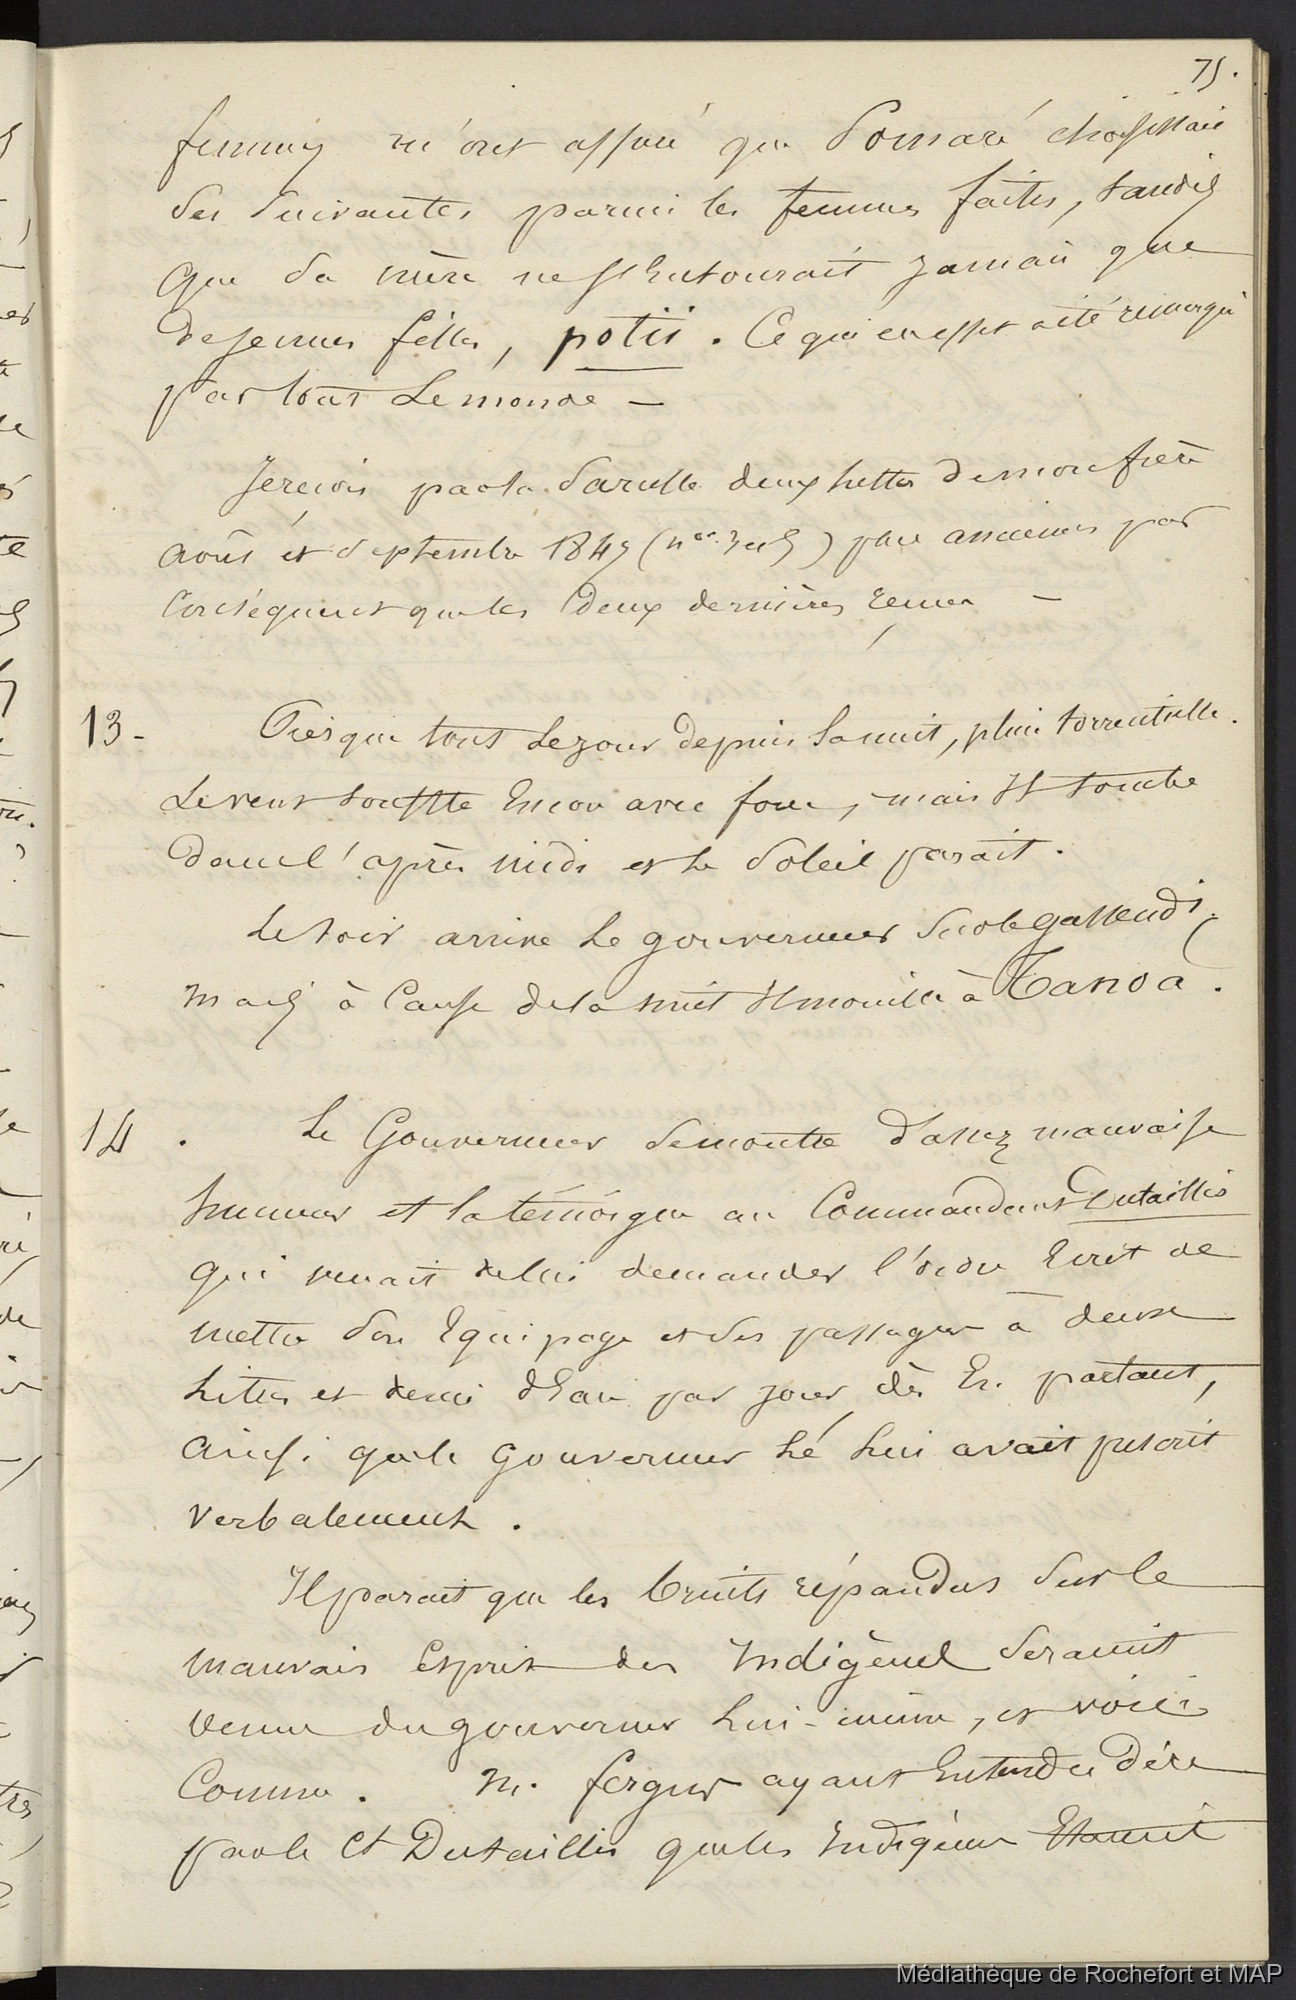 75.
femmes m'ont assuré que Pomaré choisissait
ses suivantes parmi les femmes faites, tandis
que sa mère ne s'Entourait jamais que
de jeunes filles, potii. Ce qui en effet a été remarqué
par tout Le monde —
Je reçois par la Sarcelle deux Lettres de mon frère
Août et Septembre 1845 ( ) plus anciennes par
Conséquent que les Deux dernières reçues —
13 - Presque tout Le jour Depuis La nuit, pluie torrentielle.
Le vent souffle Encore avec force, mais Il tombe
Dans l'après midi et Le Soleil parait.
Le soir arrive Le gouverneur sur le gassendi,
Mais à Cause de la nuit Il mouille à Tanoa.
14. Le Gouverneur se montre d'assez mauvaise
humeur et la témoigne au Commandant Dutaillis
qui venait de lui demander l'ordre Ecrit de
mettre son Equipage et ses passagers à deux
Litres et demi d'Eau par jour, dès En partant,
ainsi que le Gouverneur Le Lui avait prescrit
verbalement.
Il parait que les bruits répandus Sur le
mauvais Esprit des Indigènes Seraient
venus du gouverneur Lui-même, et voici
Comme. M. fergus ayant Entendu Dire
par le Ct Dutaillis que les Indigènes Etaient
Médiathèque de Rochefort et MAP